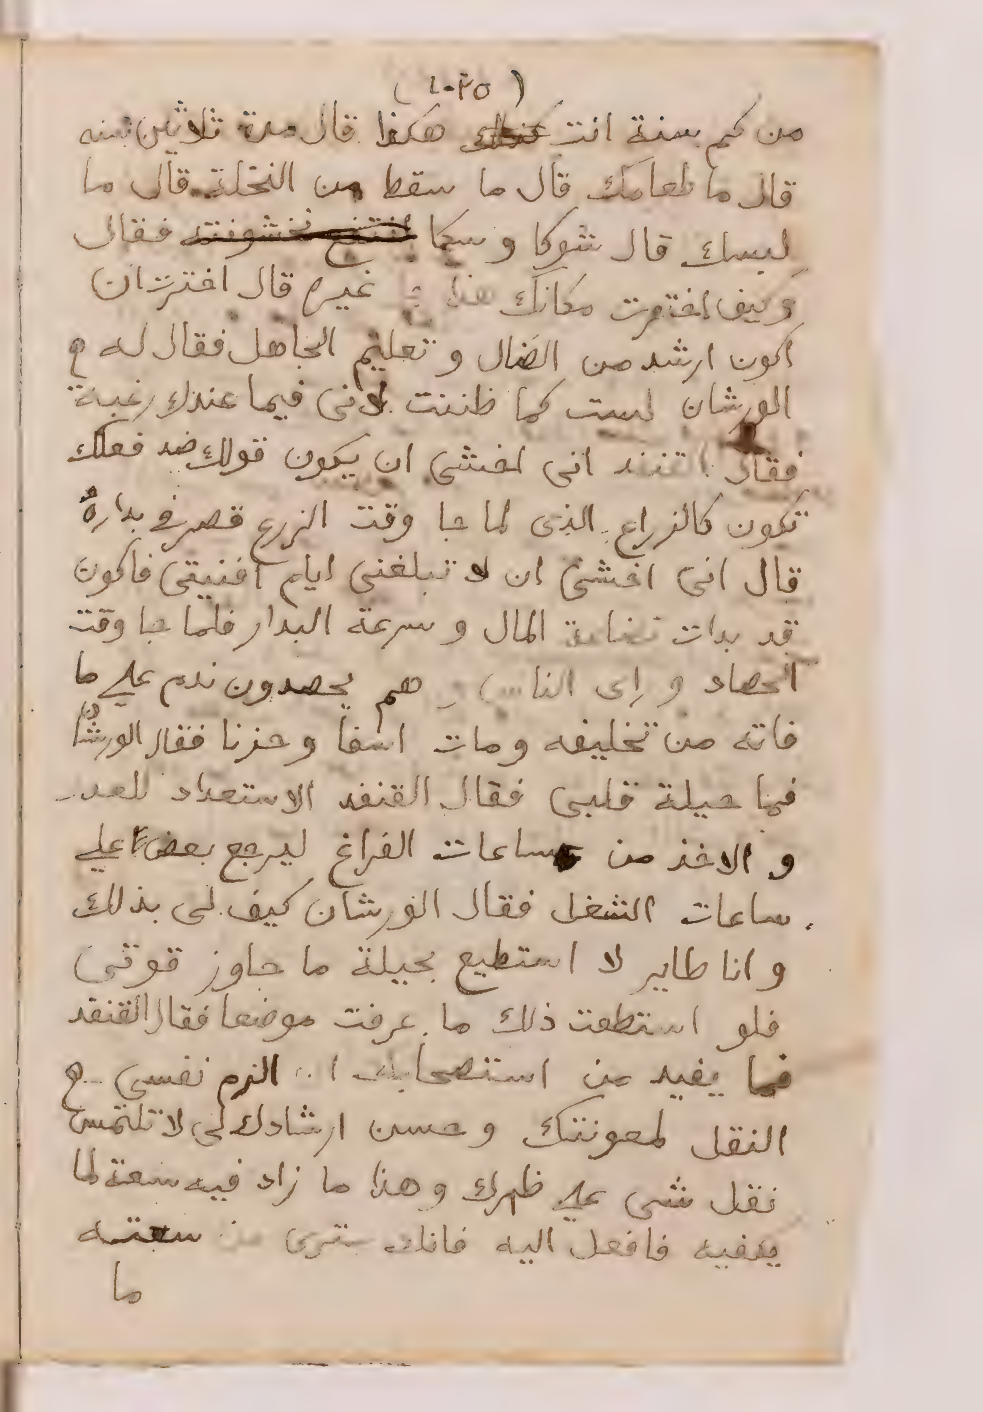 من كم سنة انت هكذا قال مدة ثلاثين سنه
قال ما طعامك قال ما سقط من النخلة قال ما
لبسك قال شوكا فقال
وكيف اخترت مكانك هذا غيره قال اخترت ان
اكون ارشد من الضال و تعليم الجاهل فقال له
الورشان لست كما ظننت لانى فيما عندك رغبة
فقال القنفد انى اخشى ان يكون قولك ضد فعلك
تكون كالزراع الذى لما جا وقت الزرع قصر فى بداره
قال انى اخشى ان لا تبلغنى ايام فاكون
قد بدات المال و سرعة البدار فلما جا وقت
الحصاد و راى الناس و هم يحصدون ندم على ما
فاته من تخليفه ومات اسفا وحزنا فقال الورشان
فما حيلة قلبى فقال القنفد الاستعداد
و الاخذ من ساعات الفراغ ليرجع بعض على
ساعات الشغل فقال الورشان كيف لى بذلك
و انا طاير لا استطيع بحيلة ما جاوز قوتى
فلو استطعت ذلك ما عرفت موضعا فقال القنفد
فما يفيد من ان الزم نفسى
النقل لمعونتك وحسن ارشادك لى لا تلتمس
نقل شى على ظهرك وهذا ما زاد فيه سعة لما
يكفيه فافعل اليه فانك سترى من سعته
ما